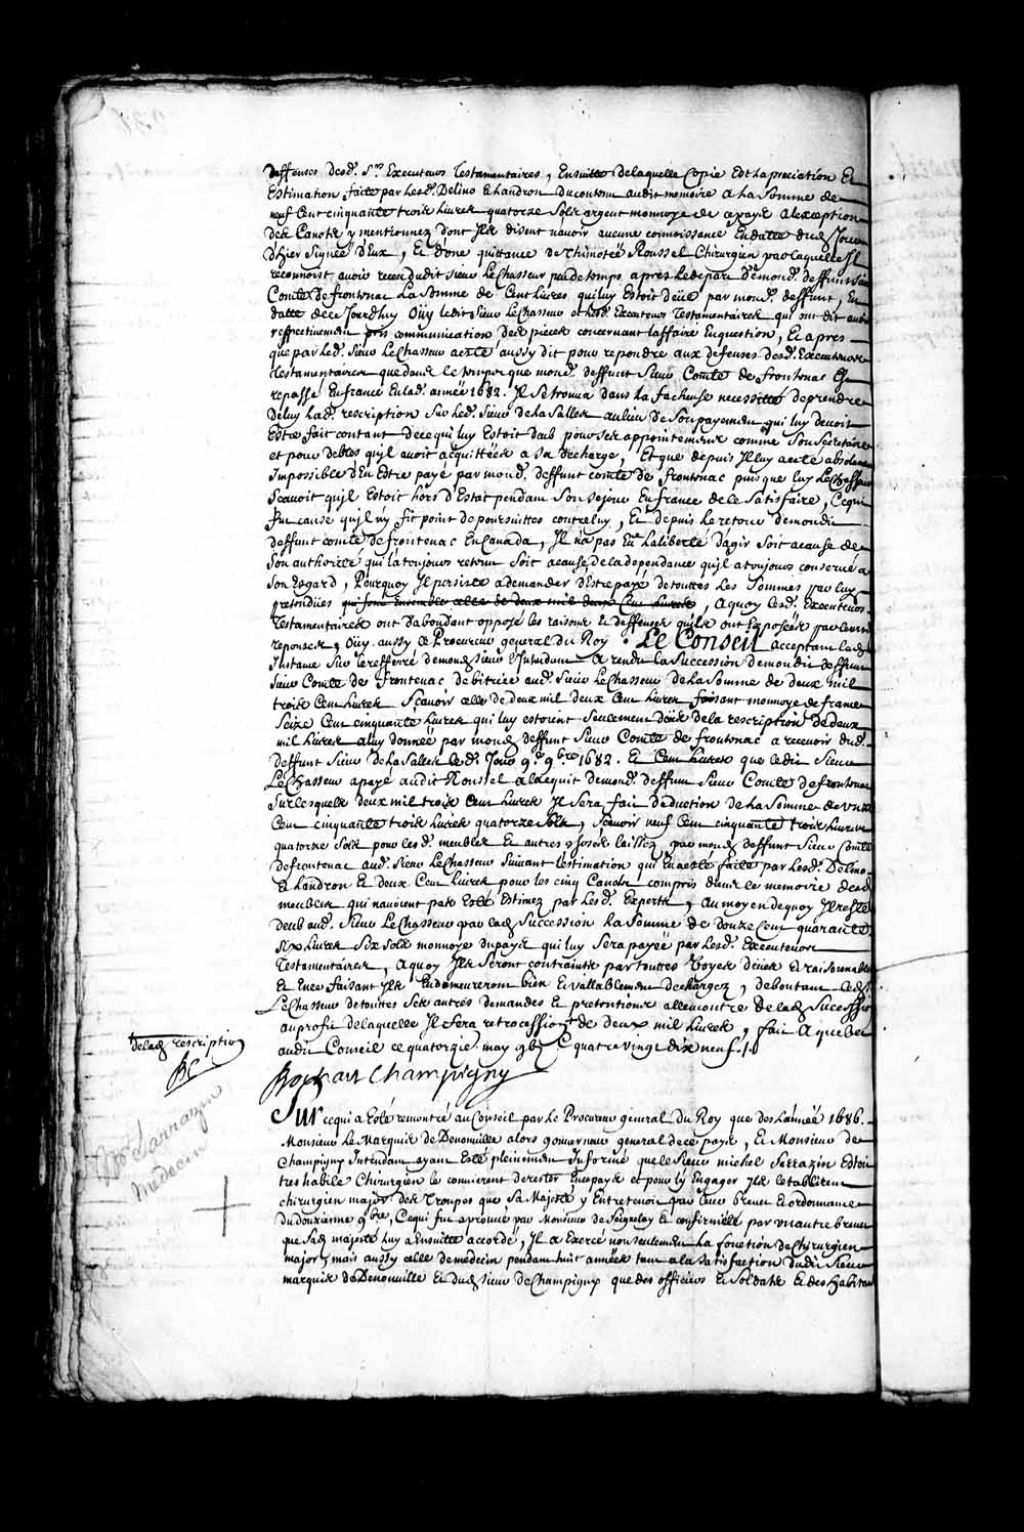 deffenses desd. Srs Executeurs Testamentaires, Ensuitte delaquelle Copie Est Lapreciation Et
Estimation faitte par Lesd. Delino & Landron Ducontenu audit memoire a La Somme de
neuf Cent cinquante trois Livres quatorze Sols argent monnoye de ce pays alexception
des Canots y mentionnez dont Ils disent navoir aucune connoissance En datte dud. Jour
D'hier Signée D'Eux, Et d'une quittance de Thimotée Roussel Chirurgien par laquelle Il
reconnoist avoir receu dudit Sieur Le Chasseur peu de temps apres Ledepart De mond. deffunt Sieur
Comte de frontenac La Somme de Cent Livres quiluy Estoit deüe par mond. deffunt, En
datte dece Jourdhuy Oüy ledit Sieur Le Chasseur et Lesd. Executeurs Testamentaires qui ont dit avoir
respectivement pris communication des pieces concernant laffaire En question, Et apres
que par Led. Sieur Le Chasseur a esté aussy dit pour repondre aux defenses desd. Executeurs
Testamentaires que dans le temps que mond. deffunt Sieur Comte de frontenac Est
repassé En france En lad. année 1682. Il Se trouva dans la facheuse necessité de prendre
de luy Lad. rescription Sur Led. Sieur de la Salle au lieu de Son payement qui luy devoit
Estre fait contant de ce qui luy Estoit deub pour Ses appointemens comme Son Secretaire
et pour debtes quil avoit acquittées a Sa decharge, Et que depuis Il luy a esté absolument
Impossible D'En Estre payé par mond. deffunt comte de frontenac puis que luy Le Chasseur
Scavoit quil Estoit hors D'Estat pendant Son Sejour En france de le Satisfaire, Ce qui
fut cause quil n'y fit point de poursuittes contre luy, Et depuis Le retour de mondit
deffunt comte de frontenac En Canada, Il n'a pas Eu La liberté d'agir Soit a cause de
Son authorité qui l'a toujours retenu Soit a cause de la dependance quil a toujours conservé a
Son Esgard, Pourquoy Il persiste a demander d'Estre payé de touttes Les Sommes par luy
pretendües qui font Ensemble celle de deux mil deux Cent Livres, a quoy Lesd. Executeurs
Testamentaires ont d'abondant opposé les raisons & deffenses quils ont Exposées par leurs
reponses, Oüy aussy Le Procureur general du Roy. Le Conseil acceptant lad.
Instance Sur Le refferré de mond. sieur Intendant a rendu La Succession de mondit deffunt
Sieur Comte de Frontenac debitrice aud. Sieur Le Chasseur de la Somme de deux mil
trois Cent Livres Sçavoir celle de deux mil deux Cent Livres faisant monnoye de france
Seize Cent cinquante Livres qui luy estoient Seulement dües de la rescription de deux
mil Livres a luy donnée par mond. deffunt Sieur Comte de frontenac a recevoir dud.
deffunt Sieur de la Salle led. Jour 9e 9bre 1682. Et Cent Livres que ledit Sieur
Le Chasseur a payé audit Roussel a lacquit de mond. deffunt Sieur Comte de frontenac
Surlesquels deux mil trois Cent Livres Il Sera fait deduction de la Somme de unze
Cent cinquante trois Livres quatorze Sols, Sçavoir neuf Cent cinquante trois Livres
quatorze Sols pour les d. meubles Et autres choses laissez par mond. deffunt Sieur Comte
de frontenac aud. Sieur Le Chasseur Suivant L'estimation qui En a esté faite par Lesd. Delino
Et Landron Et deux Cent Livres pour les cinq Canots compris dans le memoire desd.
meubles qui n'avoient pas Esté Estimez par Lesd. Experts, au moyen de quoy Il reste
deub aud. Sieur Le Chasseur par lad. Succession La Somme de Douze Cent quarante
Six Livres Six Sols monnoye du pays qui luy Sera payée par Lesd. Executeurs
Testamentaires, a quoy Ils Seront contraints par touttes Voyes deües Et raisonnables
Et En ce faisant Ils En demeureront bien Et vallablement dechargez, deboutant Led. Sr
Le Chasseur de touttes Ses autres demandes Et pretentions allencontre de lad. Succession
au profit de laquelle Il fera retrocession de deux mil Livres, fait A Quebec
audit Conseil ce quatorzie. may gbiC quatre vingt dix neuf.
delad. rescription
BC
Bochart Champigny
Mr Sarrazin
Medecin
Sur ce qui a Esté remontré au Conseil par Le Procureur general Du Roy que des Lannée 1686.
Monsieur Le Marquis de Denonville alors gouverneur general de ce pays, Et Monsieur de
Champigny Intendant ayant Esté pleinement Informé que le Sieur michel Sarrazin Estoit
tres habile Chirurgien le convierent de rester En ce pays et pour l'y Engager Ils L'etablirent
chirurgien major des troupes que Sa Majesté y Entretenoit par leur brevet & ordonnance
du douxieme 9bre, Ce qui fut aprouvé par Monsieur de Seignelay Et confirmé par un autre brevet
que Sad. majesté luy a Ensuitte accordé, Il a Exercé non seulement La fonction de Chirurgien
major mais aussy celle de medecin pendant huit années tant a la Satisfaction dudit Sieur
marquis de Denonville Et dud. Sieur de Champigny que des officiers Et Soldats Et des habitans